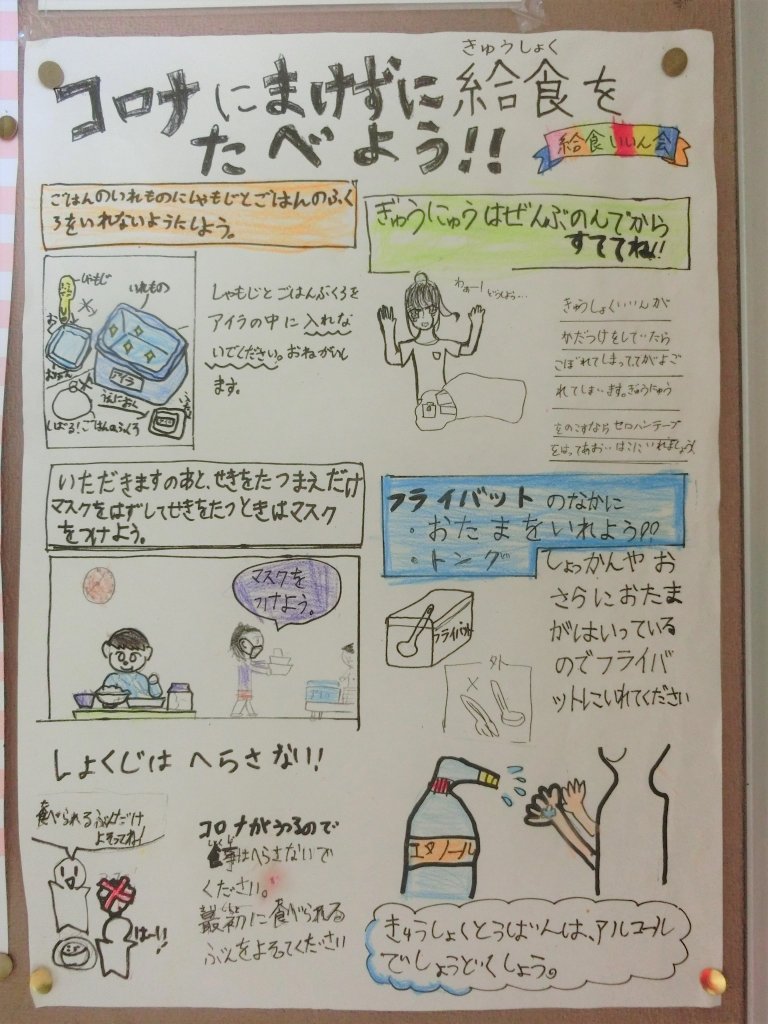 きゅうしょく
コロナにまけずに給食を
たべよう!!
給食いいん会
ごはんのいれものにしゃもじとごはんのふく
ろをいれないようにしよう。
しゃもじ
いれもの
アイラ
しばる!ごはんのふくろ
しゃもじとごはんぶくろを
アイラの中に入れな
いでください。おねがいし
ます。
ぎゅうにゅうはぜんぶのんでから
すててね!!
わぁー!どうしよう…
きゅうしょくいいんが
かたづけをしていたら
こぼれてしまっててがよご
れてしまいます。ぎゅうにゅう
をのこすならセロハンテープ
をはってあおいはこにいれましょう。
いただきますのあと、せきをたつまえだけ
マスクをはずしてせきをたつときはマスク
をつけよう。
マスクを
つけよう。
フライバットのなかに
・おたまをいれよう!!
・トング
しょっかんやお
さらにおたま
がはいっている
のでフライバ
ットにいれてください
フライバット
外
しょくじは へらさない!
食べられるぶんだけ
よそってね!
はーい!
コロナがうつるので
食事はへらさないで
ください。
最初に食べられる
ぶんをよそってください
エタノール
きゅうしょくとうばんは、アルコール
でしょうどくしよう。